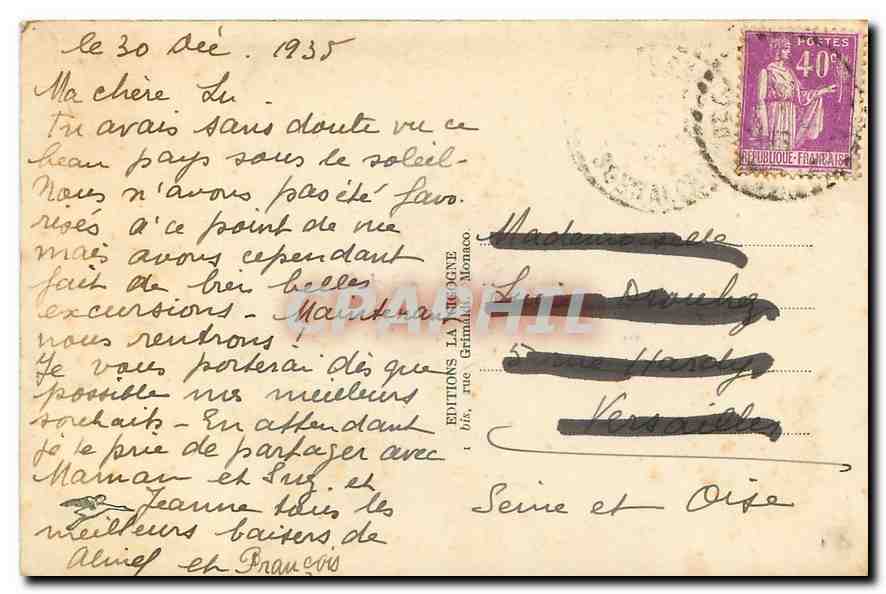 le 30 Déc. 1935
Ma chère Lu.
Tu avais sans doute vu ce
beau pays sous le soleil -
Nous n'avons pas été favo.
risés à ce point de vue
mais avons cependant
fait de bien belles
excursions - Maintenant
nous rentrons !
Je vous porterai dès que
possible mes meilleurs
souhaits - En attendant
je te prie de partager avec
Maman et Suz. et
Jeanne tous les
meilleurs baisers de
et François
EDITIONS LA CIGOGNE
1 bis, rue Grimaldi, Monaco.
POSTES
40c
REPUBLIQUE-FRANÇAISE
Mademoiselle
Hardy
Versailles
Seine et Oise
CPARHIL